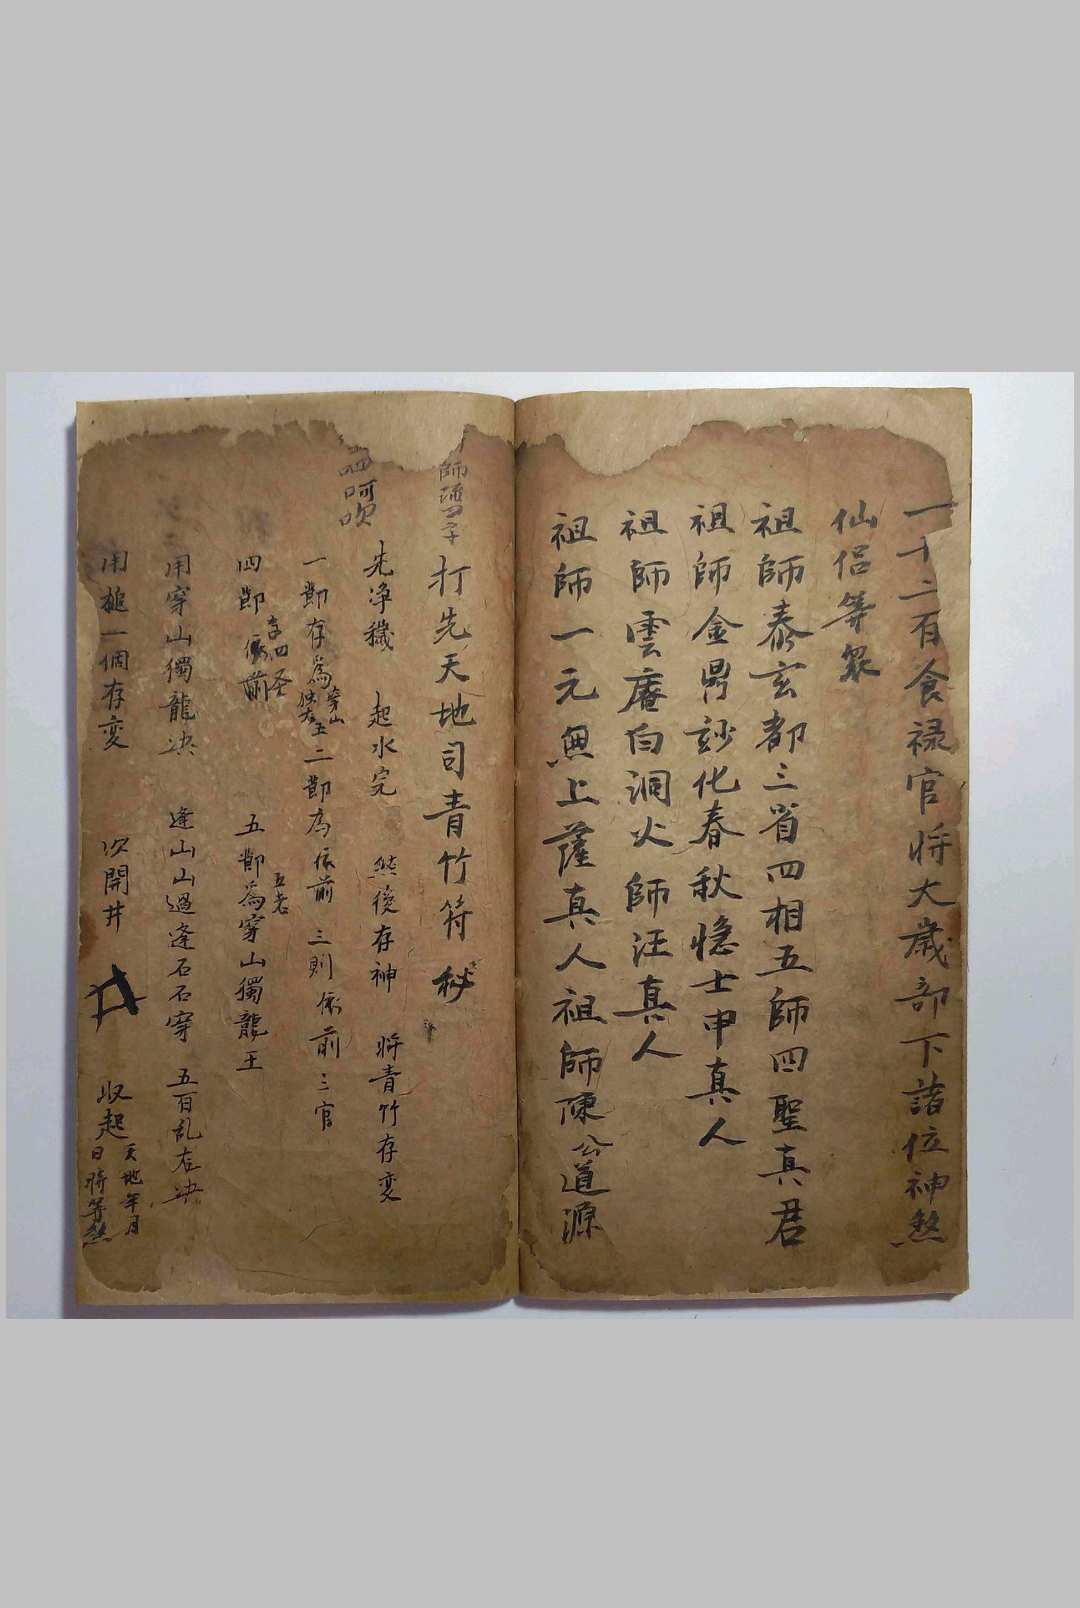 一千二百食禄官將大歲部下諸位神煞
仙侣等眾
祖師泰玄都三省四相五師四聖真君
祖師金鼎妙化春秋隐士申真人
祖師雲庵白洞火師汪真人
祖師一元無上薩真人祖師陳公道源
師
打先天地司青竹符 秘
呵吹
先净穢 起水完 然後存神 將青竹存变
一節存為穿山独龙王二節為依前 三則依前三官
四節依前存四圣 五節為五老穿山獨龍王
用穿山獨龍决 逢山山過逢石石穿 五百乱右决
用槌一個存变 次開井 井 收起天地年月日時等煞